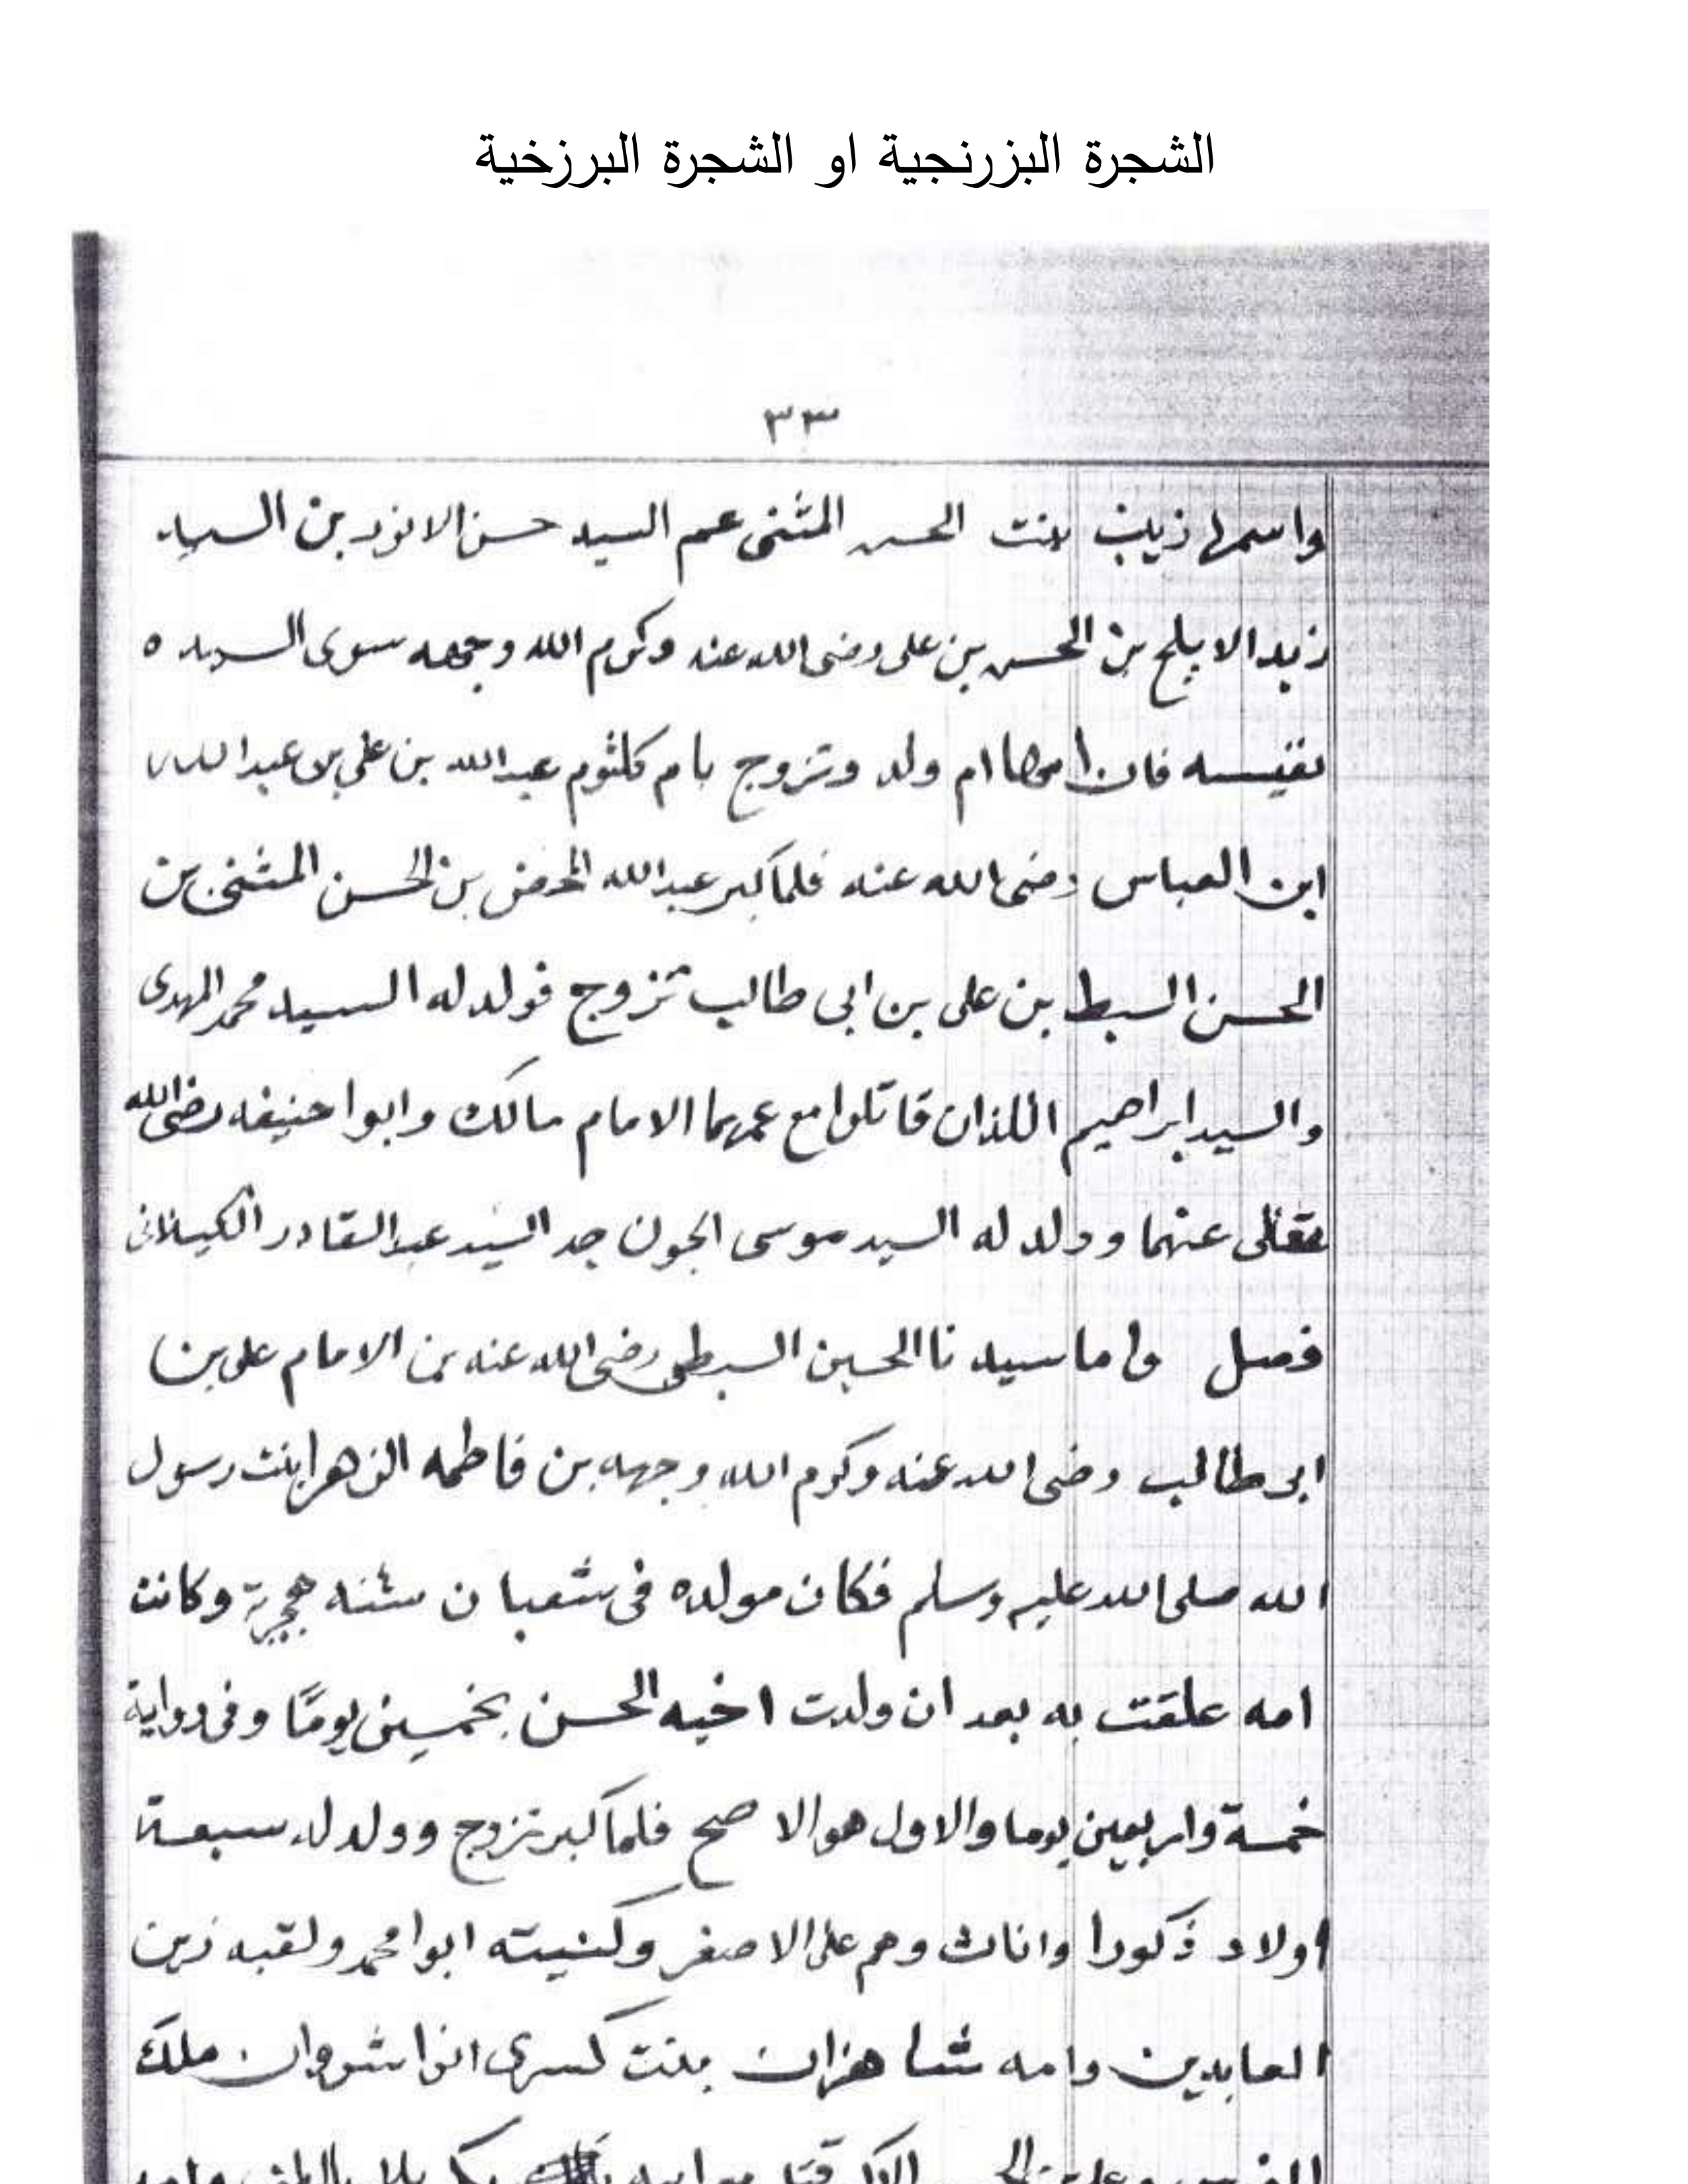 الشجرة البزرنجية او الشجرة البرزخية
٣٣
واسمها زينب بنت الحسن المثنى عم السيد حسن الانور بن السيد
زيد الابلج بن الحسن بن على رضى الله عنه وكرم الله وجهه سوى السيده
نفيسه فان امها ام ولد وتزوج بام كلثوم عبدالله بن علي بن عبدالله
ابن العباس رضى الله عنه فلما كبر عبدالله المحض بن الحسن المثنى بن
الحسن السبط بن على بن ابى طالب تزوج فولد له السيد محمد المهدى
والسيد ابراهيم اللذان قاتلوا مع عمهما الامام مالك وابوا حنيفه رضى الله
تعالى عنهما وولد له السيد موسى الجون جد السيد عبدالقادر الكيلانى
فصل واما سيدنا الحسين السبطى رضى الله عنه بن الامام على بن
ابى طالب رضى الله عنه وكرم الله وجهه بن فاطمه الزهرا بنت رسول
الله صلى الله عليه وسلم فكان مولده فى شعبان سنه هجرية وكانت
امه علقت به بعد ان ولدت اخيه الحسن بخمسين يومًا وفى رواية
خمسة واربعين يوما والاول هو الاصح فلما كبر تزوج وولد له سبعة
اولاد ذكورا واناث وهم على الاصغر وكنيته ابوا محمد ولقبه زين
العابدين وامه شاهزان بنت كسرى انوا شروان ملك